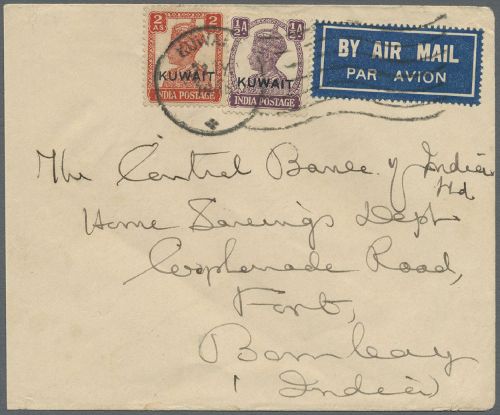 2 AS 2
KUWAIT
INDIA POSTAGE
½A ½A
KUWAIT
INDIA POSTAGE
KUWAIT
BY AIR MAIL
PAR AVION
The Central Bank of India
Ltd
Home Savings Dept
Esplanade Road,
Fort,
Bombay
(India)